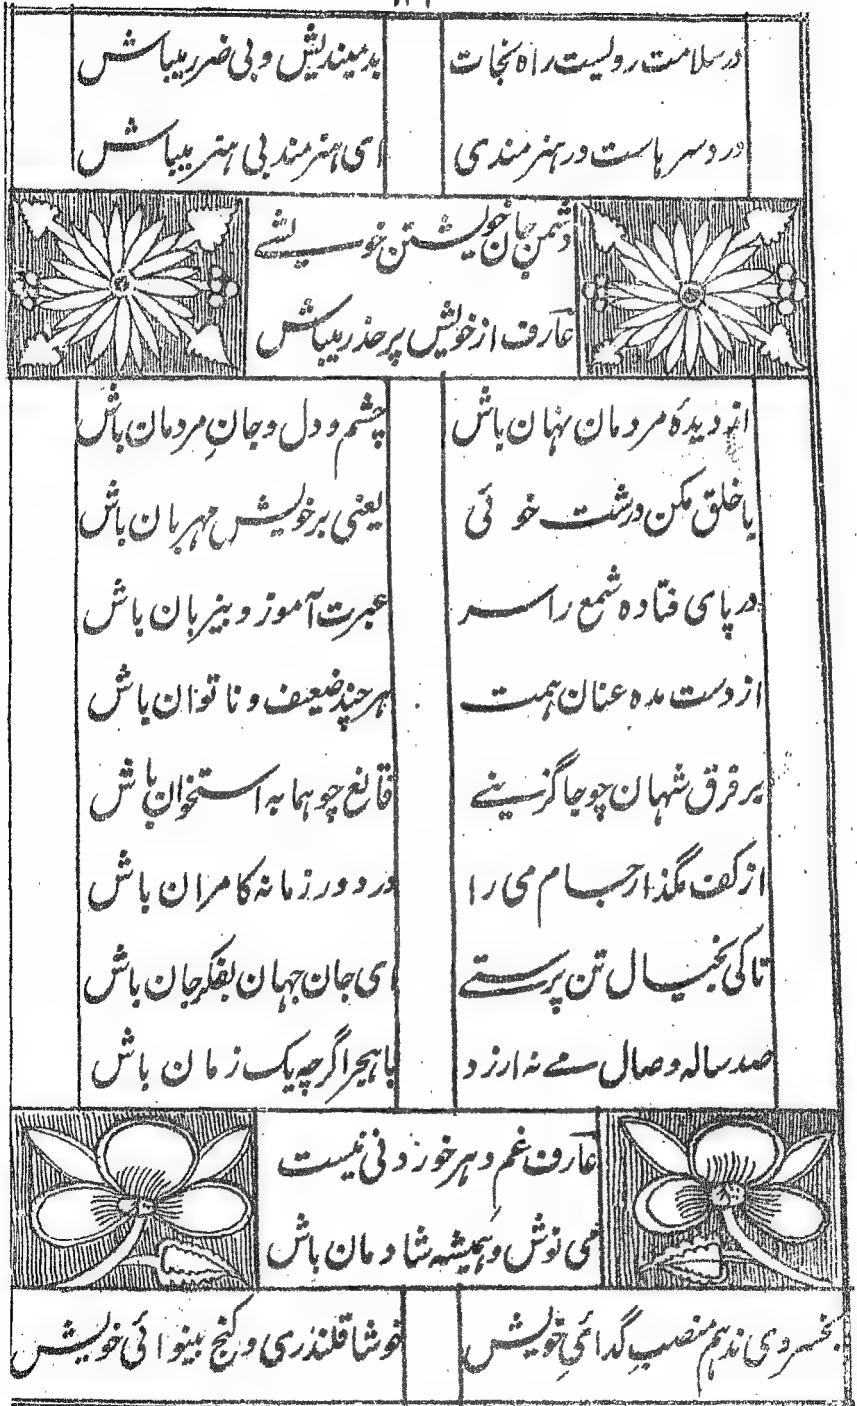 در سلامت رویست راه نجات
بد میندیش و بی ضرر میباش
درد سرهاست در هنرمندی
ای هنرمند بی هنر میباش
دشمن جان خویشتن خویشے
عارف از خویش پر حذر میباش
از دیدهٔ مردمان نهان باش
چشم و دل و جانِ مردمان باش
با خلق مکن درشت خوئی
یعنی بر خویش مهربان باش
در پای فتاده شمع را سر
عبرت آموز و بیزبان باش
از دست مده عنان همت
هر چند ضعیف و ناتوان باش
بر فرق شهان چو جا گزینے
قانع چو هما به استخوان باش
از کف مگذار جام می را
در دور زمانه کامران باش
تا کی بخیال تن پرستے
ای جان جهان بفکر جان باش
صد ساله وصال مے نه ارزد
با هجر اگرچه یک زمان باش
عارف غم دهر خوردنی نیست
می نوش و همیشه شادمان باش
بخسروی ندهم منصبِ گدائیِ خویش
خوشا قلندری و کنج بینوائی خویش